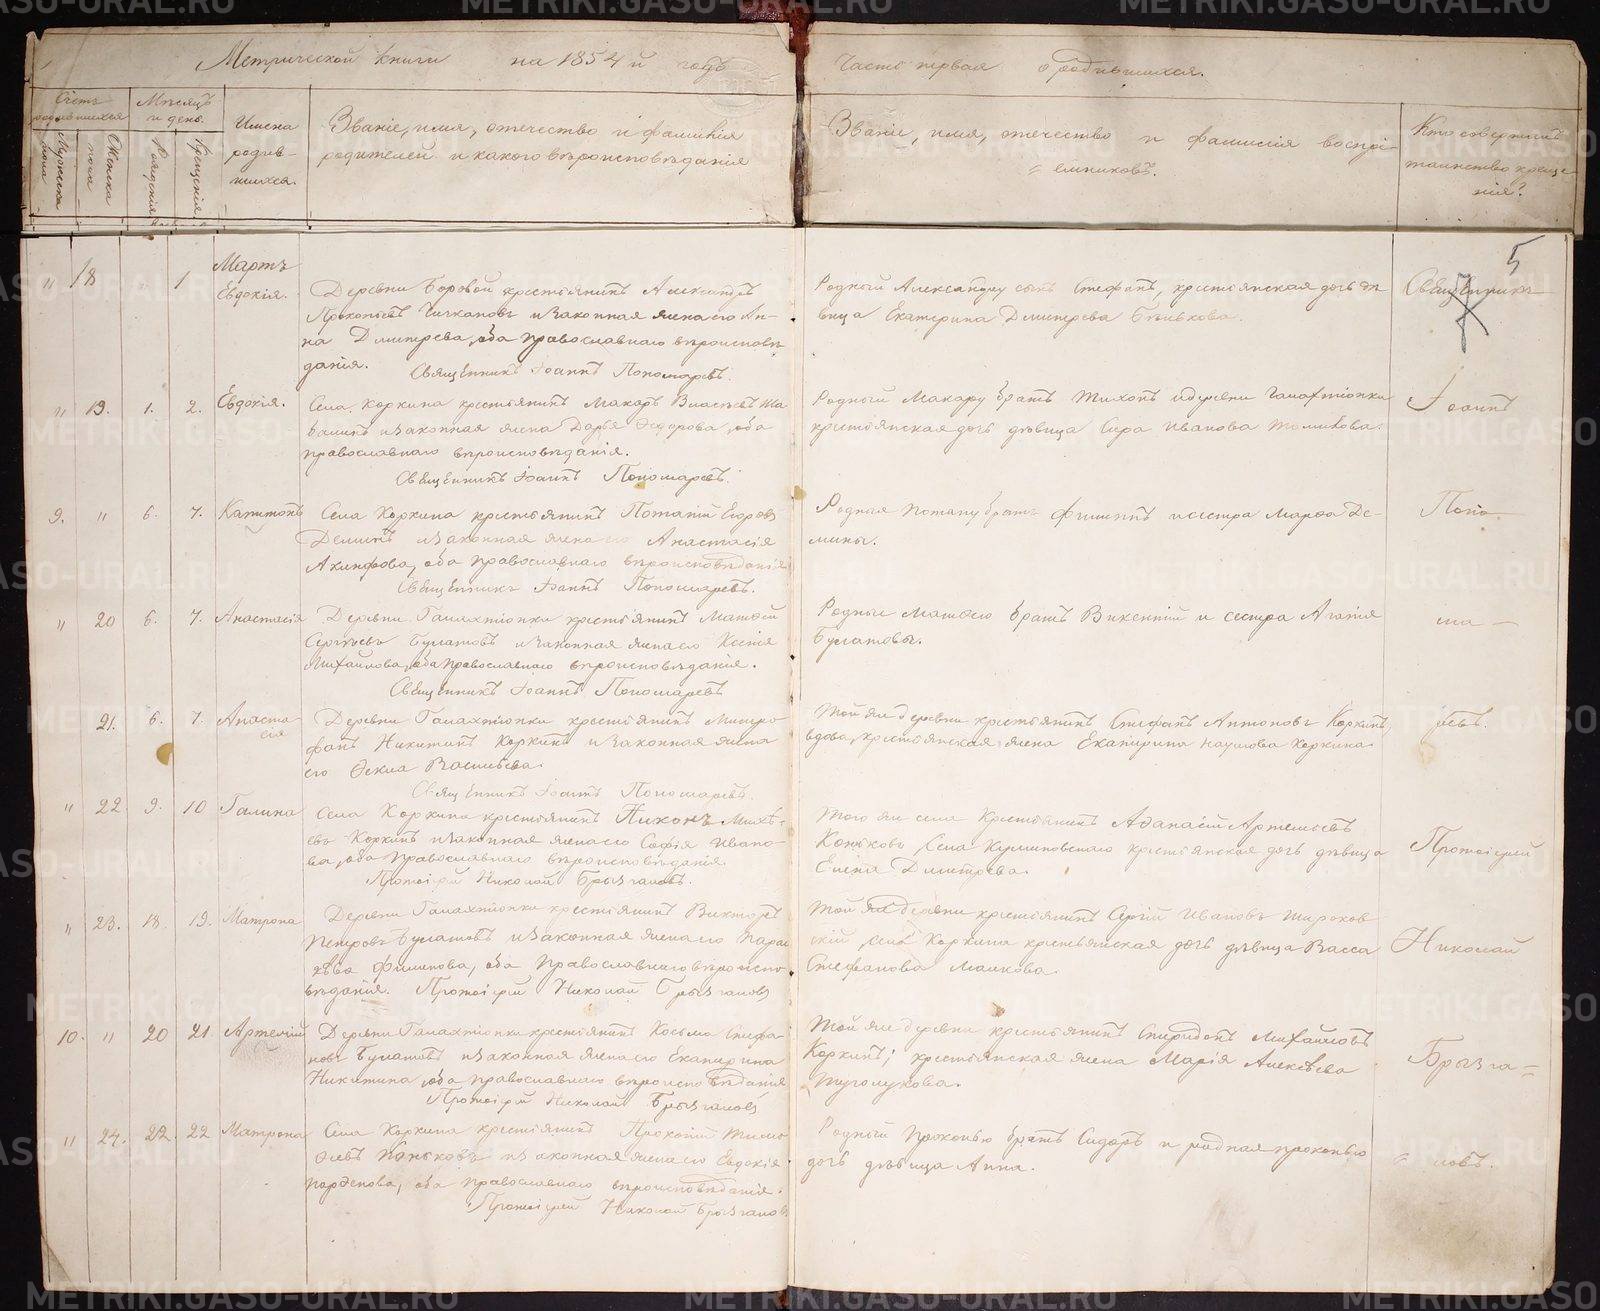 Метрической книги на 1854й годъ
Часть первая о родившихся.
Счетъ родившихся
Мужеска пола
Женска пола
Мѣсяцъ и день.
Рожденія
Крещенія
Имена
родив-
шихся.
Званіе, имя, отечество и фамилія
родителей и какого вѣроисповѣданія
Званіе, имя, отечество и фамилія воспрі-
емниковъ.
Кто совершилъ
таинство креще-
нія?
5
Мартъ
" 18 1 Евдокія.
Деревни Боровой крестьянинъ Александръ
Прокопьевъ Чичкановъ и законная жена его Ан-
на Дмитрева, оба православнаго вѣроисповѣ-
данія. Священникъ Іоаннъ Пономаревъ.
Родный Александру сынъ Стефанъ, крестьянская дочь дѣ-
вица Екатерина Дмитрева
Священникъ
" 19. 1. 2. Евдокія.
Села Коркина крестьянинъ Макаръ Власьевъ
и законная жена Дарья Ѳедорова, оба
православнаго вѣроисповѣданія.
Священникъ Іоаннъ Пономаревъ.
Родный Макару братъ Тихонъ и деревни
крестьянская дочь дѣвица Иванова
Іоаннъ
9. " 6. 7. Капитонъ
Села Коркина крестьянинъ Потапій Егоровъ
Деминъ и законная жена его Анастасія
Акинфова, оба православнаго вѣроисповѣданія
Священникъ Іоаннъ Пономаревъ.
Родныя Потапу братъ Филиппъ и сестра Марѳа Де-
мины.
Поно-
" 20 6. 7. Анастасія
Деревни Галахтіонки крестьянинъ Матвей
Сергеевъ Булатовъ и законная жена его Ксенія
Михайлова, оба православнаго вѣроисповѣданія.
Священникъ Іоаннъ Пономаревъ
Родные Матвею братъ Викентій и сестра Агапія
Булатовы.
ма-
21. 6. 7. Анаста
сія
Деревни Галахтіонки крестьянинъ Митро-
фанъ Никитинъ Коркинъ и законная жена
его Ѳекла Васильева.
Священникъ Іоаннъ Пономаревъ.
Той же деревни крестьянинъ Стефанъ Антоновъ Коркинъ,
вдова, крестьянская жена Екатерина Наумова Коркина.
ревъ.
" 22 9. 10 Галина
Села Коркина крестьянинъ Никонъ Михѣ-
евъ Коркинъ и законная жена его Софія Ивано-
ва, оба православнаго вѣроисповѣданія.
Протоіерей Николай Брызгаловъ.
Того же села крестьянинъ Аѳанасій Артемьевъ
Коньковъ, села крестьянская дочь дѣвица
Елена Дмитрева.
Протоіерей
" 23. 18. 19. Матрона
Деревни Галахтіонки крестьянинъ Викторъ
Петровъ Булатовъ и законная жена его Парас
кѣва Филипова, оба православнаго вѣроиспо-
вѣданія. Протоіерей Николай Брызгаловъ
Той же деревни крестьянинъ Сергій Ивановъ Широков-
скій, села Коркина крестьянская дочь дѣвица Васса
Стефанова Малкова.
Николай
10. " 20 21. Артемій
Деревни Галахтіонки крестьянинъ Косьма Стефа-
новъ Булатовъ и законная жена его Екатерина
Никитина, оба православнаго вѣроисповѣданія
Протоіерей Николай Брызгаловъ
Той же деревни крестьянинъ Спиридонъ Михайловъ
Коркинъ; крестьянская жена Марія Алексѣева
Туголукова.
Брызга=
" 24. 22. 22 Матрона
Села Коркина крестьянинъ Прокопій Тимо-
ѳеевъ Коньковъ и законная жена его Евдокія
оба православнаго вѣроисповѣданія.
Протоіерей Николай Брызгаловъ
Родный Прокопью братъ Сидоръ и родная Прокопью
дочь дѣвица Анна.
= ловъ.
METRIKI.GASO-URAL.RU